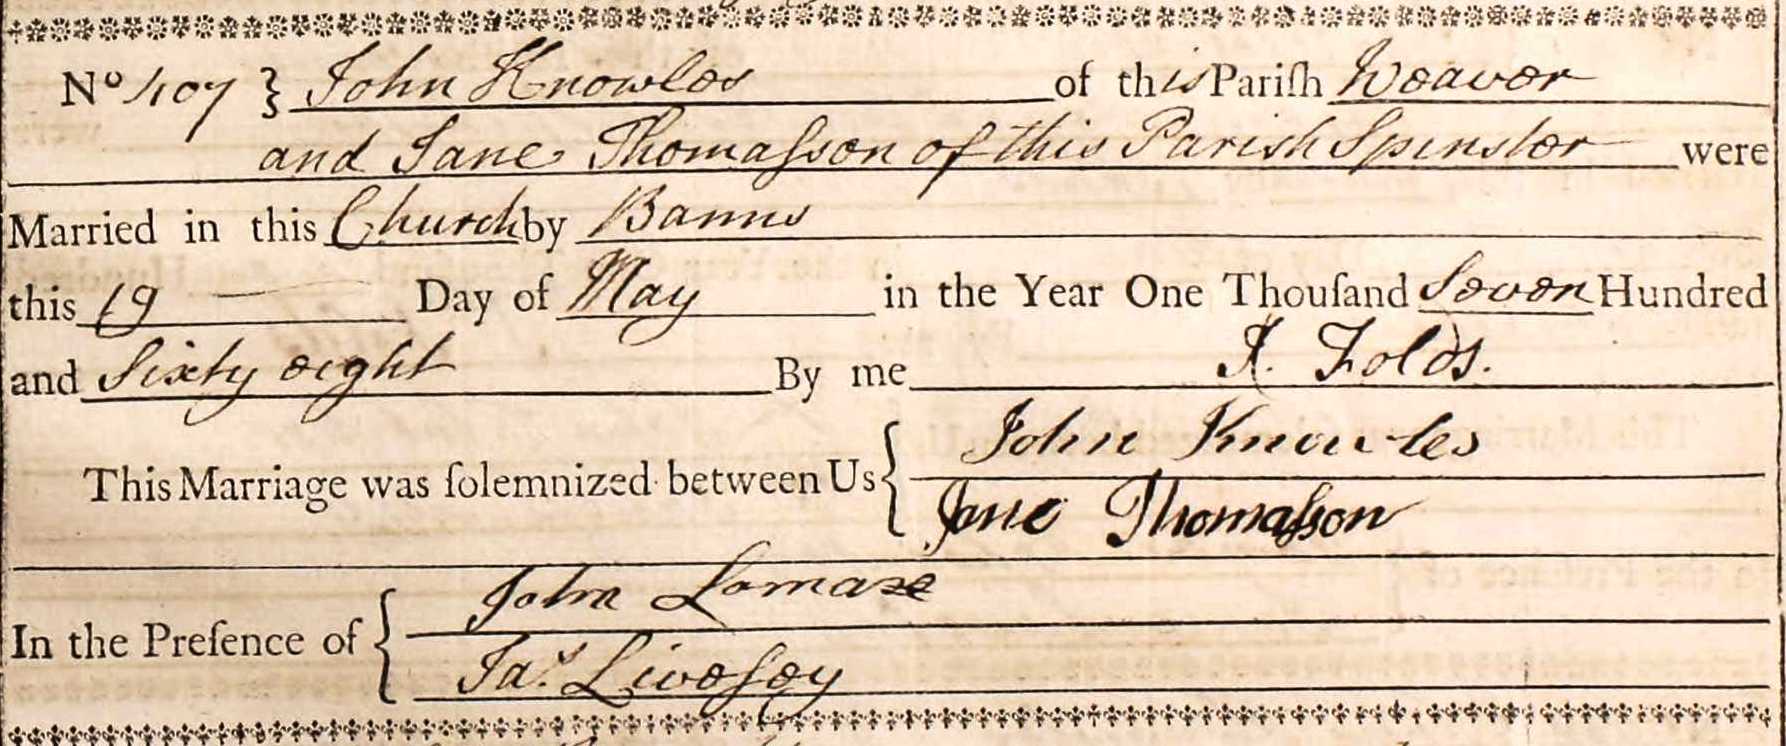 Nº 407 } John Knowles of this Pariſh Weaver
and Jane Thomaſson of this Parish Spinster were
Married in this Church by Banns
this 19 Day of May in the Year One Thouſand Seven Hundred
and Sixty eight By me J. Folds.
This Marriage was ſolemnized between Us { John Knowles
Jane Thomaſson
In the Preſence of { John Lomax
Jas. Liveſey